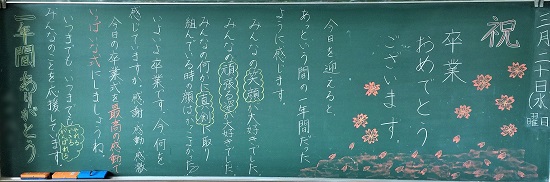 三月二十日(水)
曜日
祝
卒業
おめでとう
ございます。
今日を迎えると、
あっという間の一年間だった
ように感じます。
みんなの笑顔が大好きでした。
みんなの頑張る姿が好きでした。
みんなの何事にも真剣に取り
組んでいる時の顔はかっこよかった。
いよいよ卒業です。今、何を
感じていますか。感謝、感動、感激
今日の卒業式を最高で感動
いっぱいな式にしましょうね。
いつまでも いつまでも
みんなのことを応援しています。
一年間ありがとう